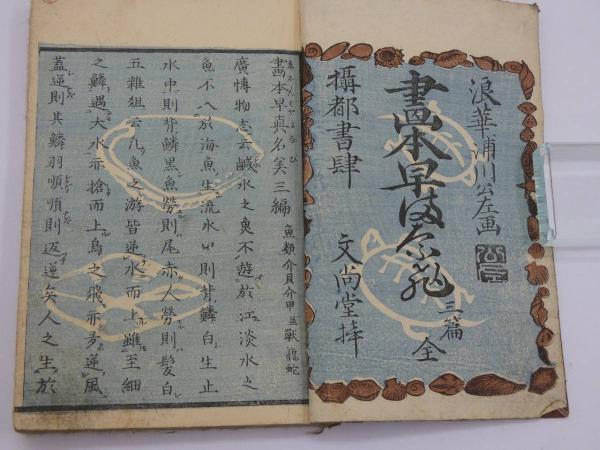 浪華浦川公左画
画本早まなひ
三篇 全
攝都書肆 文尚堂梓
畫本早真名美三編 魚類介貝介甲並獸龍蛇
廣博物志云鹹水之魚不遊於江淡水之
魚不入於海魚生流水則背鱗白生止
水中則背鱗黒魚勞則尾赤人勞則髪白
五雜俎云凡魚之游皆逆水而上雖至細
之鱗遇大水亦搶而上鳥之飛亦多逆風
蓋逆則其鱗羽順順則返逆矣人之生於